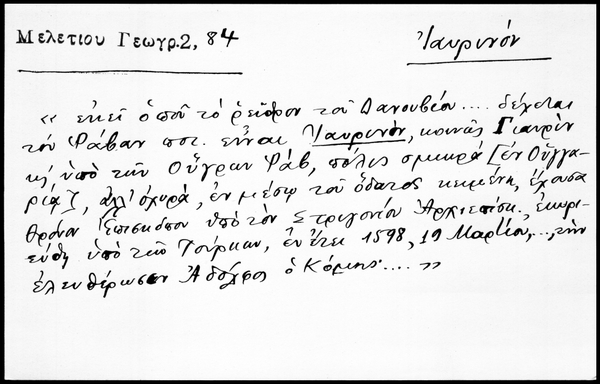 Μελετίου Γεωγρ.2, 84
Ἰαυρινόν
« ἐκεῖ ὁποῦ τὸ ῥεῖθρον τοῦ Δανουβίου .... δέχεται
τὸν Ῥάβαν ποτ. εἶναι Ἰαυρινόν, κοινῶς Γιαυρὶν
κ' ὑπὸ τῶν Οὔγγρων Ῥάβ, πόλις σμικρά [ἐν Οὐγγα-
ρίᾳ], ἀλλ' ὀχυρά, ἐν μέσῳ τοῦ ὕδατος κειμένη, ἔχουσα
θρόνον Ἐπισκόπου ὑπὸ τὸν Στριγονίου Ἀρχιεπίσκ.,
ὑπὸ τῶν Τούρκων, ἐν ἔτει 1598, 19 Μαρτίου, ..., τὴν
ἐλευθέρωσεν Ἀδόλφος ὁ Κόμης .... »